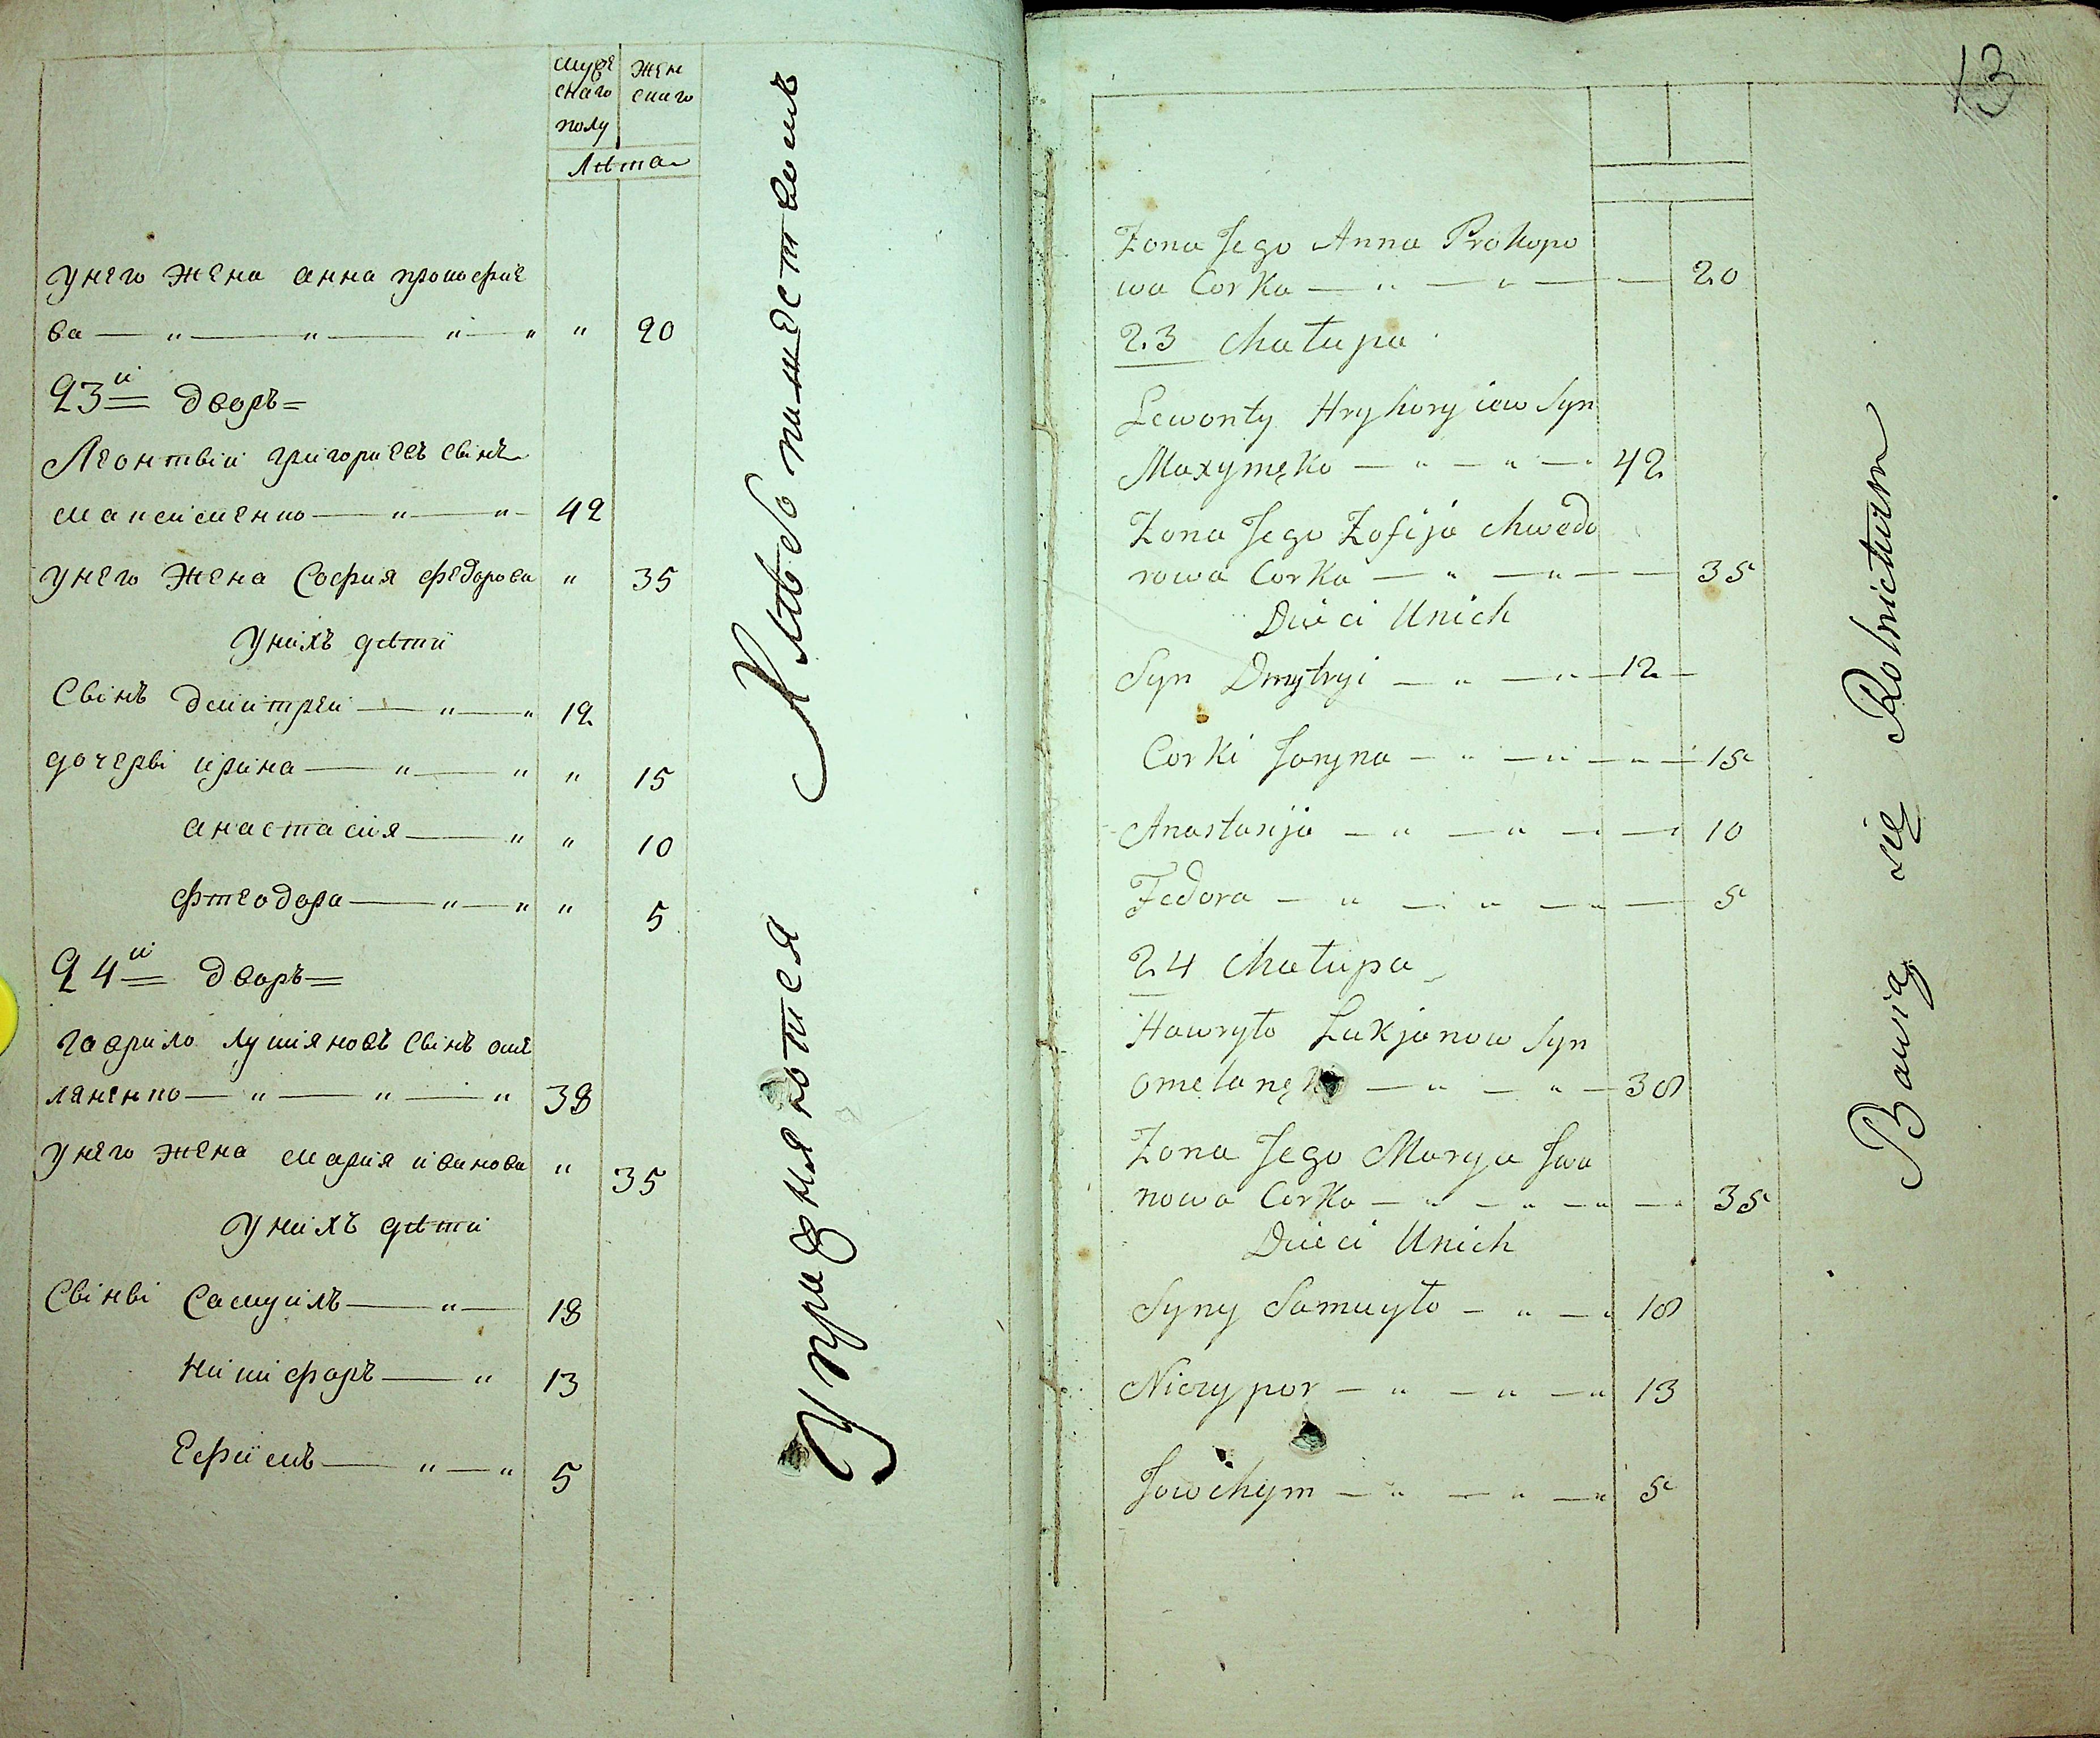 муже
скаго
полу
жен
скаго
Лѣта
у него жена анна прокофие
ва — " — " — " — " " 20
23й дворъ =
Леонтвій григориевъ сынъ
максименко — " — " — 42
у него жена София федорова " 35
у нихъ дѣти
Сынъ дмитрей — " — " 12
дочеры ирина — " — " " 15
анастасия — " " 10
фтеодора — " — " " 5
24й дворъ =
гаврило лукіановъ сынъ оме
ляненко — " — " — " 38
у него жена мария иванова " 35
у нихъ дѣти
Сыны Самуилъ — " — 18
никифоръ — " 13
Ефимъ — " — " 5
Упражняются Хлѣбопашествомъ
13
Zona Jego Anna Prokopo
wa Corka — " — " — — 20
23 chałupa
Lewonty Hryhoryiew Syn
Maxymęko — " — " — " 42
Zona Jego Zofija chwedo
rowa Corka — " — " — — 35
Dzieci Unich
Syn Dmytryi — " — " — 12 —
Corki Jaryna — " — " — " — 15
Anastasija — " — " — " — 10
Fedora — " — " — " — 5
24 chałupa
Hawryło Łukjanow Syn
omelanęko — " — " — 38
Zona Jego Marya Jwa
nowa Corka — " — " — " — " 35
Dzieci Unich
Syny Samuyło — " — " 18
Niczypor — " — " — " 13
Jowchym — " — " — " 5
Bawią się Rolnictwem